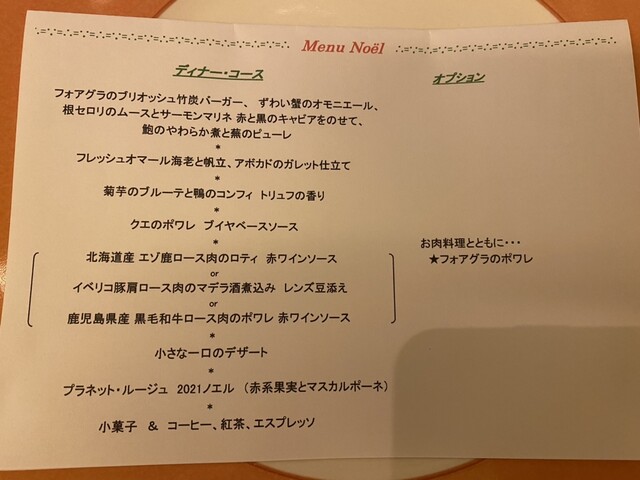 Menu Noël
ディナー・コース
オプション
フォアグラのブリオッシュ竹炭バーガー、 ずわい蟹のオモニエール、
根セロリのムースとサーモンマリネ 赤と黒のキャビアをのせて、
鮑のやわらか煮と蕪のピューレ
*
フレッシュオマール海老と帆立、アボカドのガレット仕立て
*
菊芋のブルーテと鴨のコンフィ トリュフの香り
*
クエのポワレ ブイヤベースソース
*
北海道産 エゾ鹿ロース肉のロティ 赤ワインソース
or
イベリコ豚肩ロース肉のマデラ酒煮込み レンズ豆添え
or
鹿児島県産 黒毛和牛ロース肉のポワレ 赤ワインソース
お肉料理とともに・・・
★フォアグラのポワレ
*
小さな一口のデザート
*
プラネット・ルージュ 2021ノエル （赤系果実とマスカルポーネ）
*
小菓子 ＆ コーヒー、紅茶、エスプレッソ